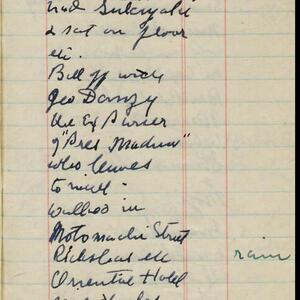 had Sukiyaki
& sat on floor
etc.
Bill off with
Geo Danzy
the Ex Purser
of "Pres Madison"
who leaves
to nite -
walked in
Motomachi Street
Rickshas etc
rain
Orriental Hotel